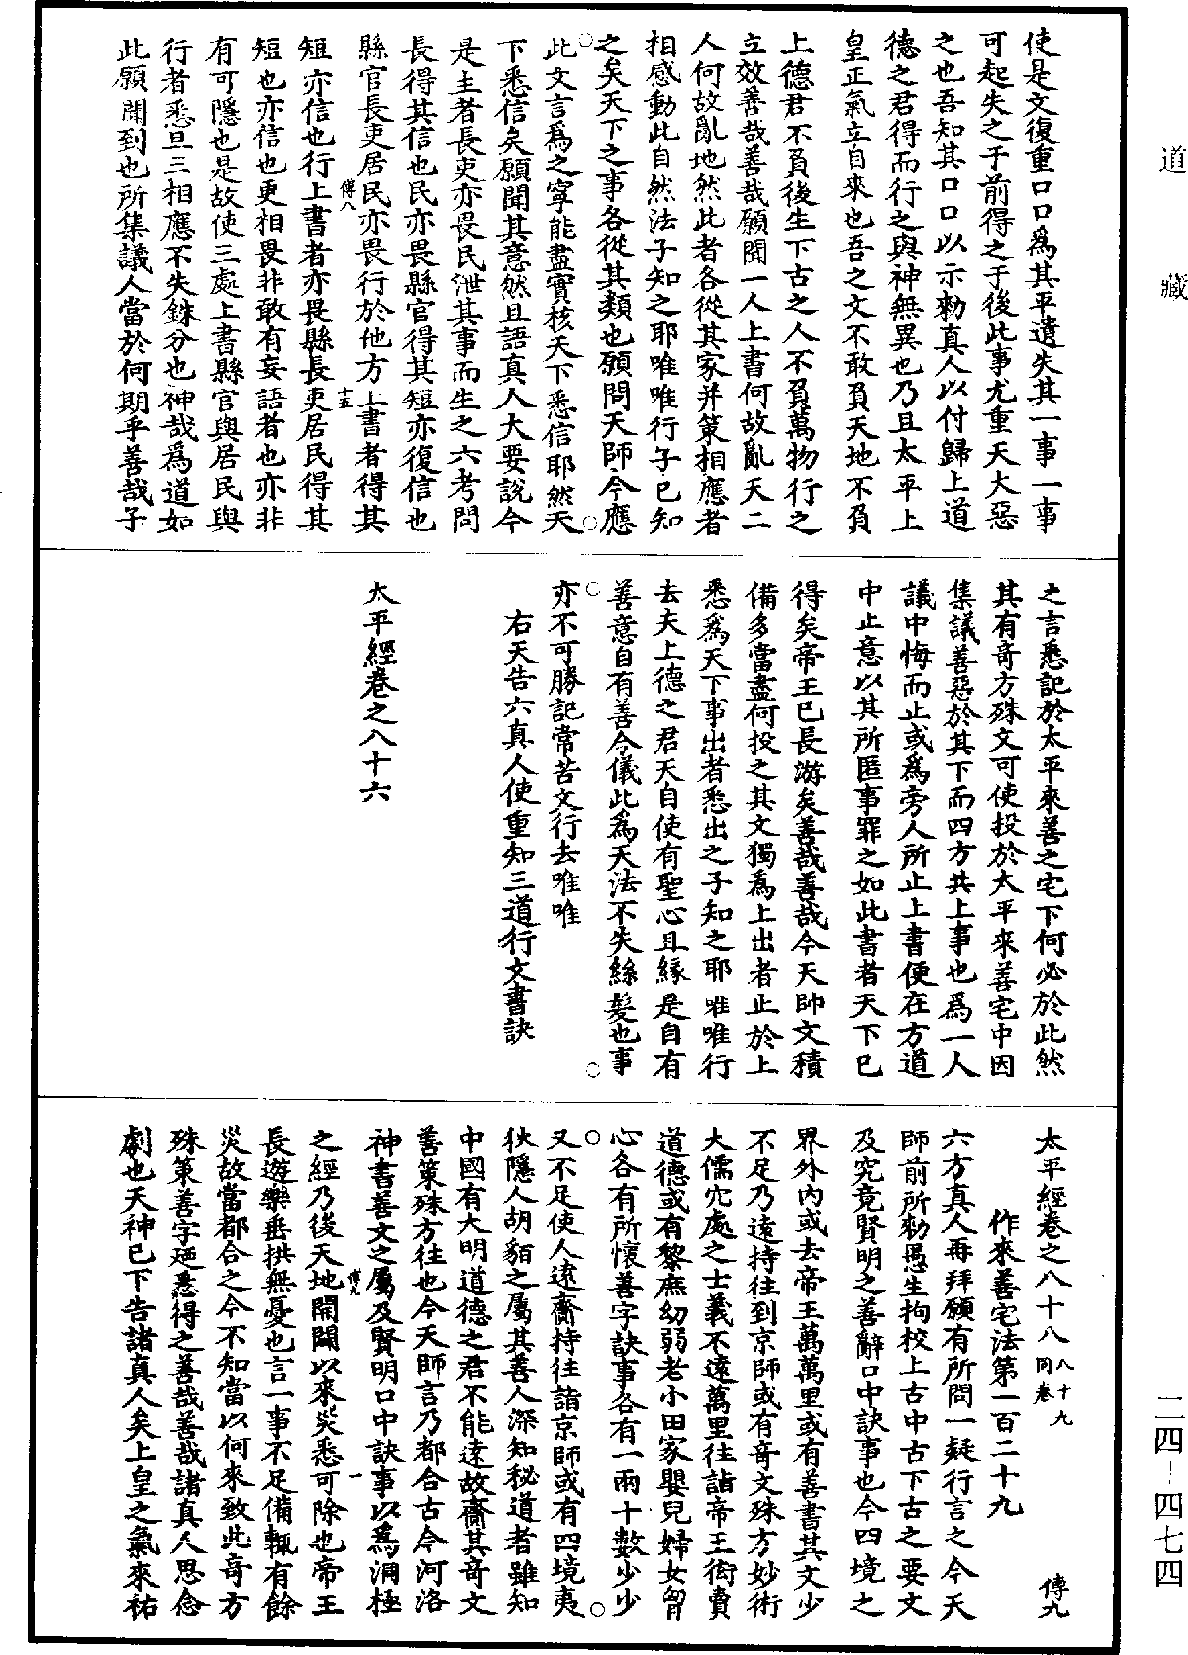 道藏
使是文復重口口爲其平遺失其一事一事
可起失之于前得之于後此事尤重天大惡
之也吾知其口口以示勑真人以付歸上道
德之君得而行之與神無異也乃且太平上
皇正氣立自來也吾之文不敢負天地不負
上德君不負後生下古之人不負萬物行之
立效善哉善哉願聞一人上書何故亂天二
人何故亂地然此者各從其家并策相應者
相感動此自然法子知之耶唯唯行子已知
之矣天下之事各從其類也願問天師今應
此文言爲之寧能盡實核天下悉信耶然天
下悉信矣願聞其意然且語真人大要說今
是主者長吏亦畏民泄其事而生之六考問
長得其信也民亦畏縣官得其短亦復信也
縣官長吏居民亦畏行於他方上書者得其
傅八 十五
短亦信也行上書者亦畏縣長吏居民得其
短也亦信也更相畏非敢有妄語者也亦非
有可隱也是故使三處上書縣官與居民與
行者悉旦三相應不失銖分也神哉爲道如
此願聞到也所集議人當於何期乎善哉子
之言悉記於太平來善之宅下何必於此然
其有奇方殊文可使投於太平來善宅中因
集議善惡於其下而四方共上事也爲一人
議中悔而止或爲旁人所止上書便在方道
中止意以其所匿事罪之如此書者天下已
得矣帝王已長游矣善哉善哉今天師文積
備多當盡何投之其文獨爲上出者止於上
悉爲天下事出者悉出之子知之耶唯唯行
去夫上德之君天自使有聖心且緣是自有
善意自有善令儀此爲天法不失絲髮也事
亦不可勝記常苦文行去唯唯
右天告六真人使重知三道行文書訣
太平經卷之八十六
太平經卷之八十八 八十九同卷 傅九
作來善宅法第一百二十九
六方真人再拜願有所問一疑行言之今天
師前所勑愚生拘校上古中古下古之要文
及究竟賢明之善辭口中訣事也今四境之
界外內或去帝王萬萬里或有善書其文少
不足乃遠持往到京師或有奇文殊方妙術
大儒穴處之士義不遠萬里往詣帝王衒賣
道德或有黎庶幼弱老小田家嬰兒婦女胷
心各有所懷善字訣事各有一兩十數少少
又不足使人遠齎持往詣京師或有四境夷
狄隱人胡貊之屬其善人深知秘道者雖知
中國有大明道德之君不能遠故齎其奇文
善策殊方往也今天師言乃都合古今河洛
神書善文之屬及賢明口中訣事以爲洞極
傅九 一
之經乃後天地開闢以來災悉可除也帝王
長遊樂垂拱無憂也言一事不足備輒有餘
災故當都合之今不知當以何來致此奇方
殊策善字廼悉得之善哉善哉諸真人思念
劇也天神已下告諸真人矣上皇之氣來祐
二四—四七四